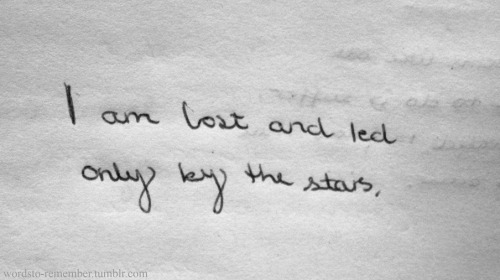 I am lost and led
only by the stars.
wordsto-remember.tumblr.com